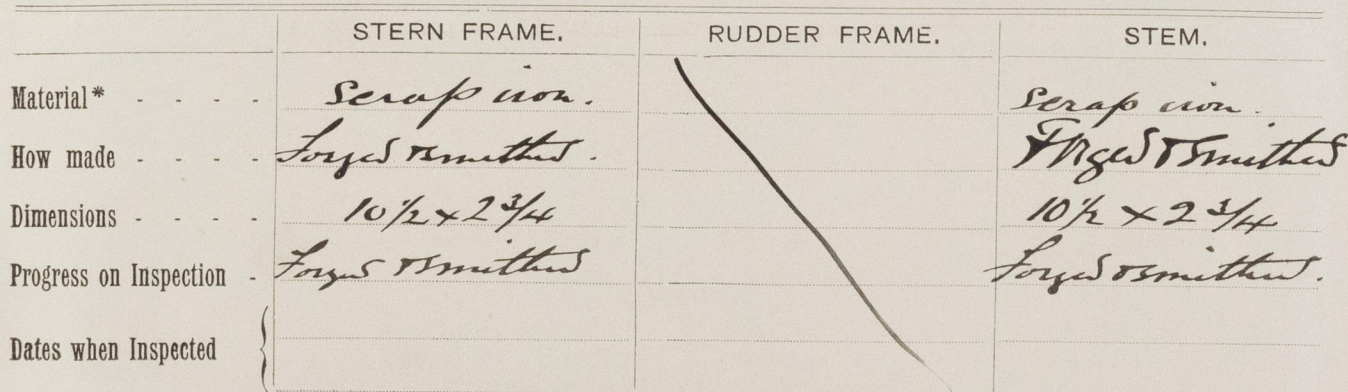 STERN FRAME. RUDDER FRAME. STEM.
Material* - - - - Scrap iron. Scrap iron.
How made - - - - Forged & smithed. Forged & smithed
Dimensions - - - - 10 1/2 x 2 3/4 10 1/2 x 2 3/4
Progress on Inspection - Forged & smithed Forged & smithed.
Dates when Inspected